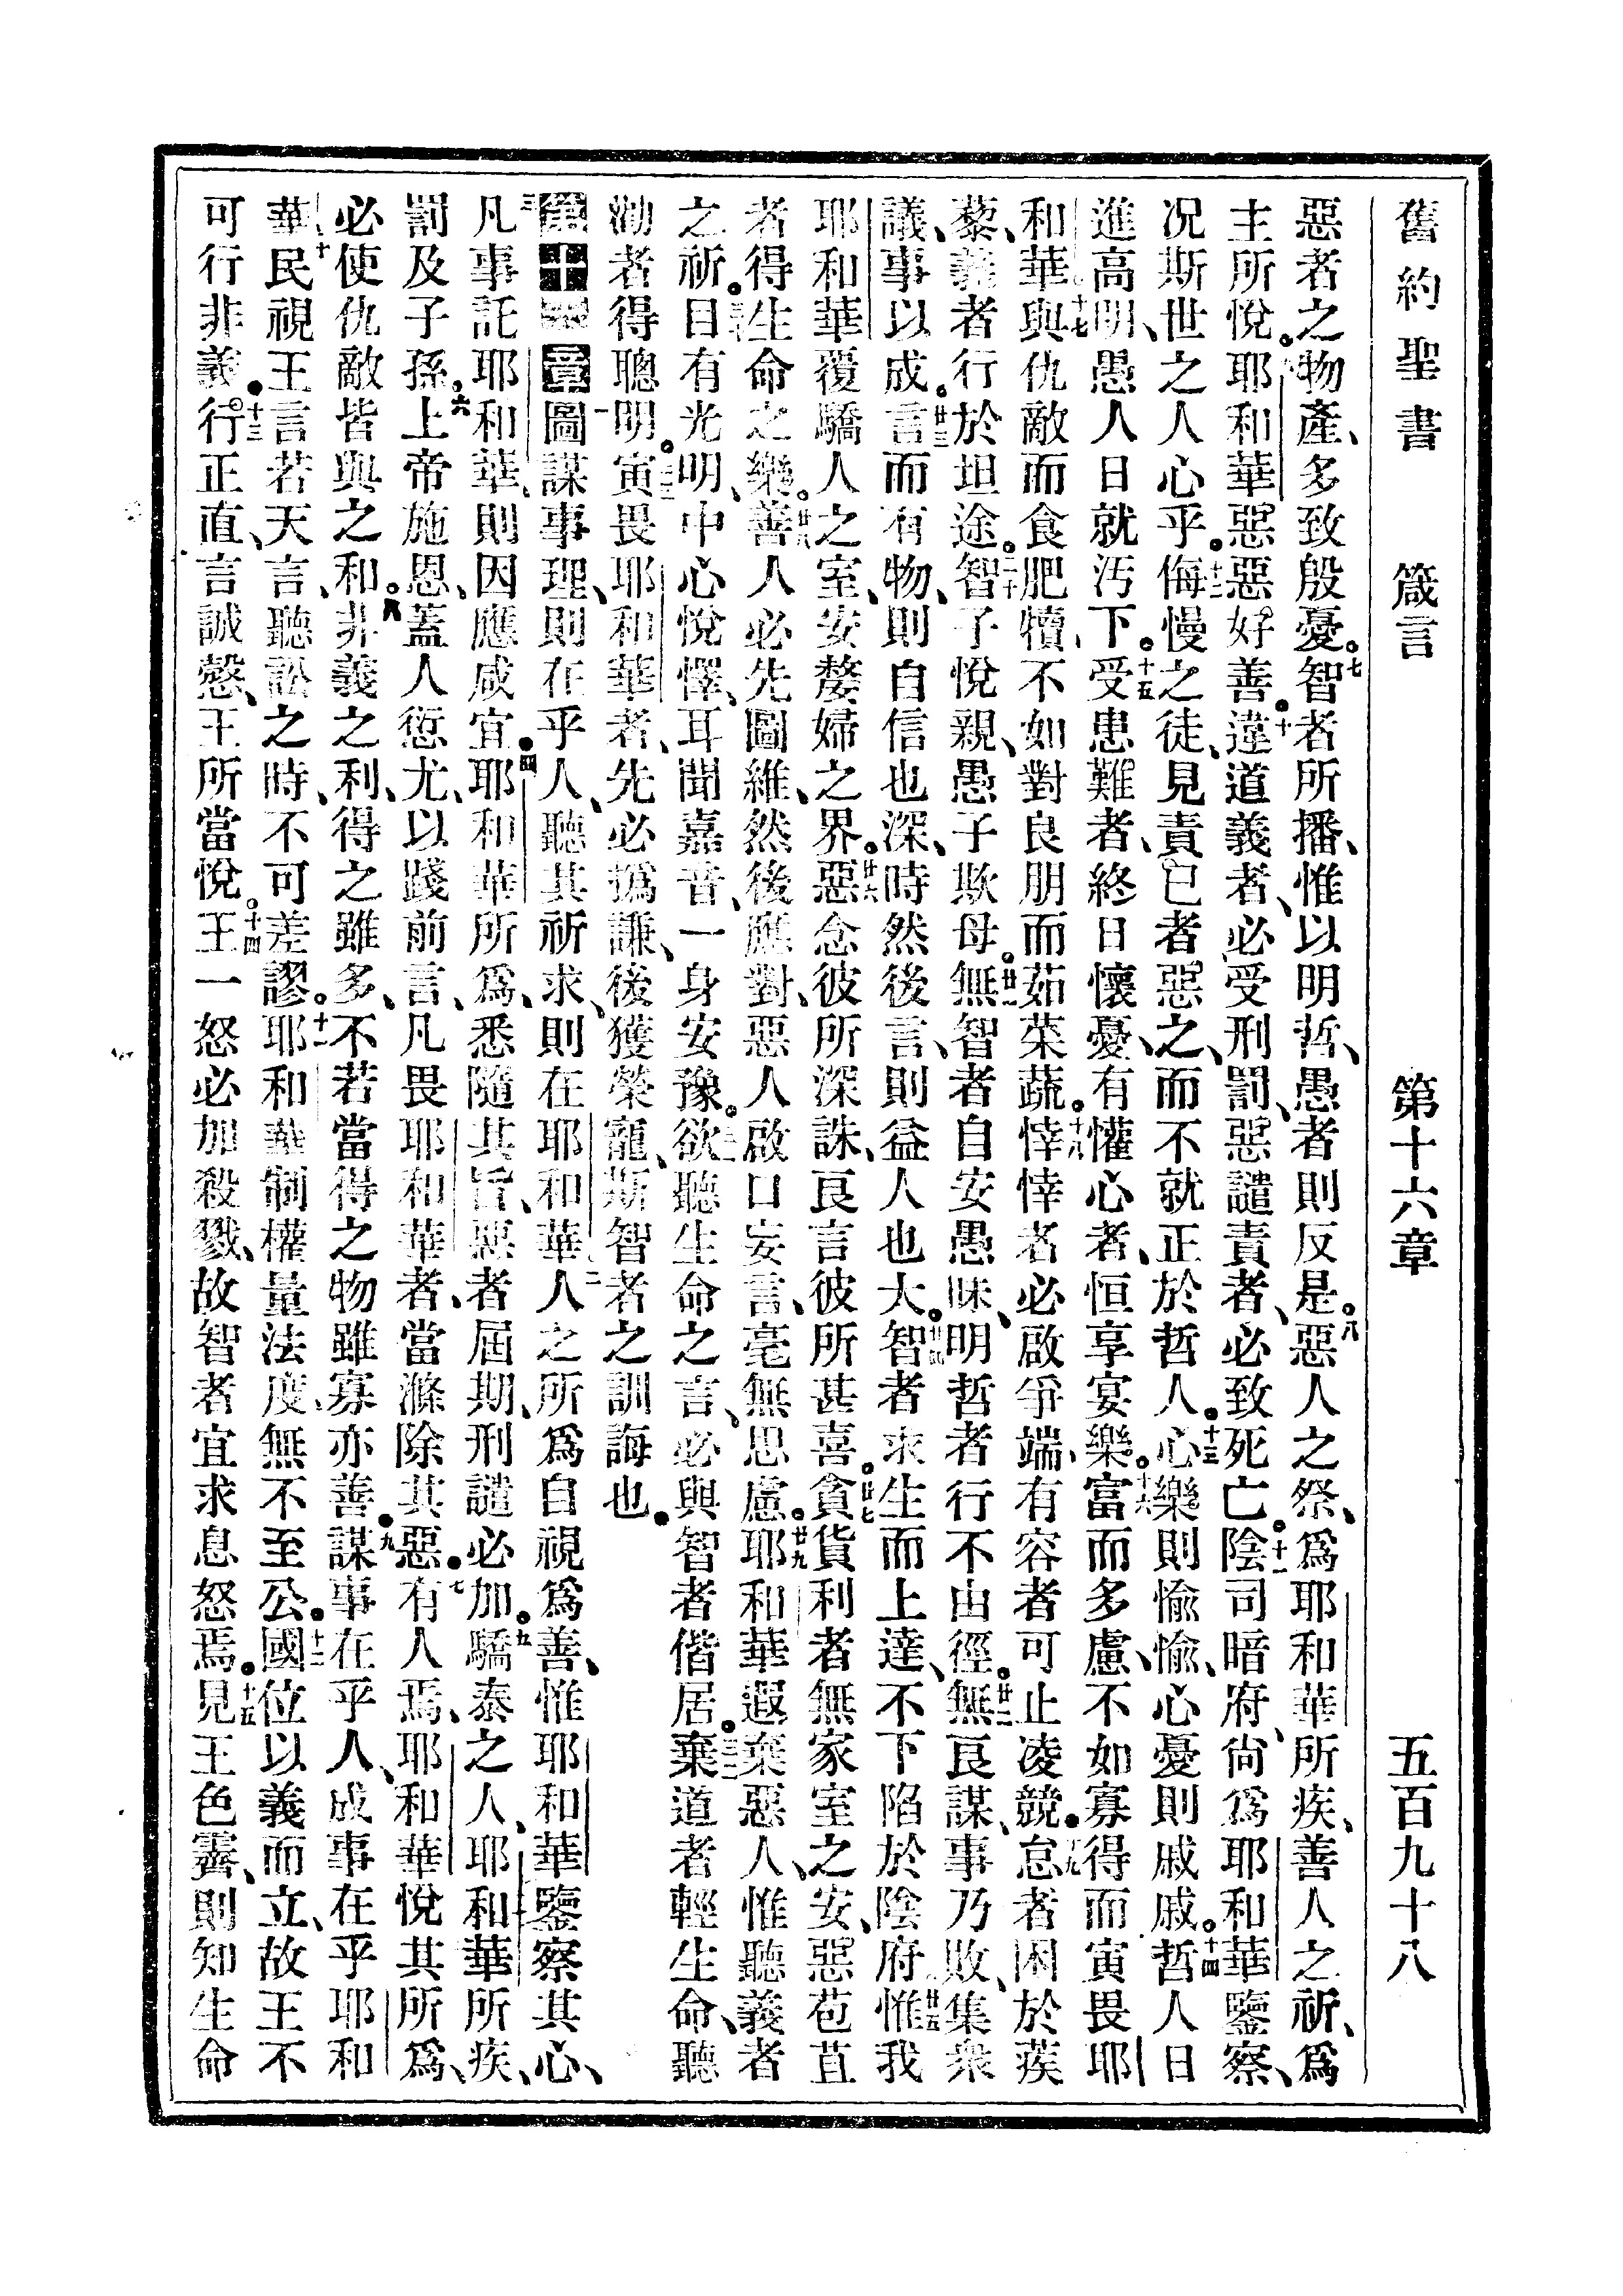 舊約聖書 箴言 第十六章 五百九十八
惡者之物產、多致殷憂。七智者所播、惟以明哲、愚者則反是。八惡人之祭、爲耶和華所疾、善人之祈、爲
主所悅。耶和華惡惡好善。十違道義者、必受刑罰、惡譴責者、必致死亡。十一陰司暗府、尙爲耶和華鑒察、
况斯世之人心乎。十二侮慢之徒、見責己者、惡之、而不就正於哲人。十三心樂則愉愉、心憂則戚戚。十四哲人日
進高明、愚人日就汚下。十五受患難者、終日懷憂、有懽心者、恒享宴樂。十六富而多慮、不如寡得而寅畏耶
和華。十七與仇敵而食肥犢、不如對良朋而茹菜蔬。十八悻悻者必啟爭端、有容者可止凌競。十九怠者困於蒺
藜、義者行於坦途。二十智子悅親、愚子欺母。廿一無智者自安愚昧、明哲者行不由徑。廿二無良謀、事乃敗、集衆
議、事以成。廿三言而有物、則自信也深、時然後言、則益人也大。廿四智者求生而上達、不下陷於陰府。廿五惟我
耶和華覆驕人之室、安嫠婦之界。廿六惡念彼所深誅、良言彼所甚喜。廿七貪貨利者無家室之安、惡苞苴
者得生命之樂。廿八善人必先圖維、然後應對、惡人啟口妄言、毫無思慮。廿九耶和華遐棄惡人、惟聽義者
之祈。三十目有光明、中心悅懌、耳聞嘉音、一身安豫。三一欲聽生命之言、必與智者偕居。三二棄道者輕生命、聽
泐者得聰明。三三寅畏耶和華者、先必撝謙、後獲榮寵、斯智者之訓誨也。
第十六章一圖謀事理、則在乎人、聽其祈求、則在耶和華。二人之所爲自視爲善、惟耶和華鑒察其心、
三凡事託耶和華、則因應咸宜。四耶和華所爲、悉隨其旨、惡者屆期、刑譴必加。五驕泰之人、耶和華所疾、
罰及子孫。六上帝施恩、蓋人愆尤、以踐前言、凡畏耶和華者、當滌除其惡。七有人焉、耶和華悅其所爲、
必使仇敵皆與之和。八非義之利、得之雖多、不若當得之物雖寡亦善。九謀事在乎人、成事在乎耶和
華。十民視王言若天言、聽訟之時、不可差謬。十一耶和華制權量法度、無不至公。十二國位以義而立、故王不
可行非義。十三行正直、言誠慤、王所當悅。十四王一怒必加殺戮、故智者宜求息怒焉。十五見王色霽、則知生命